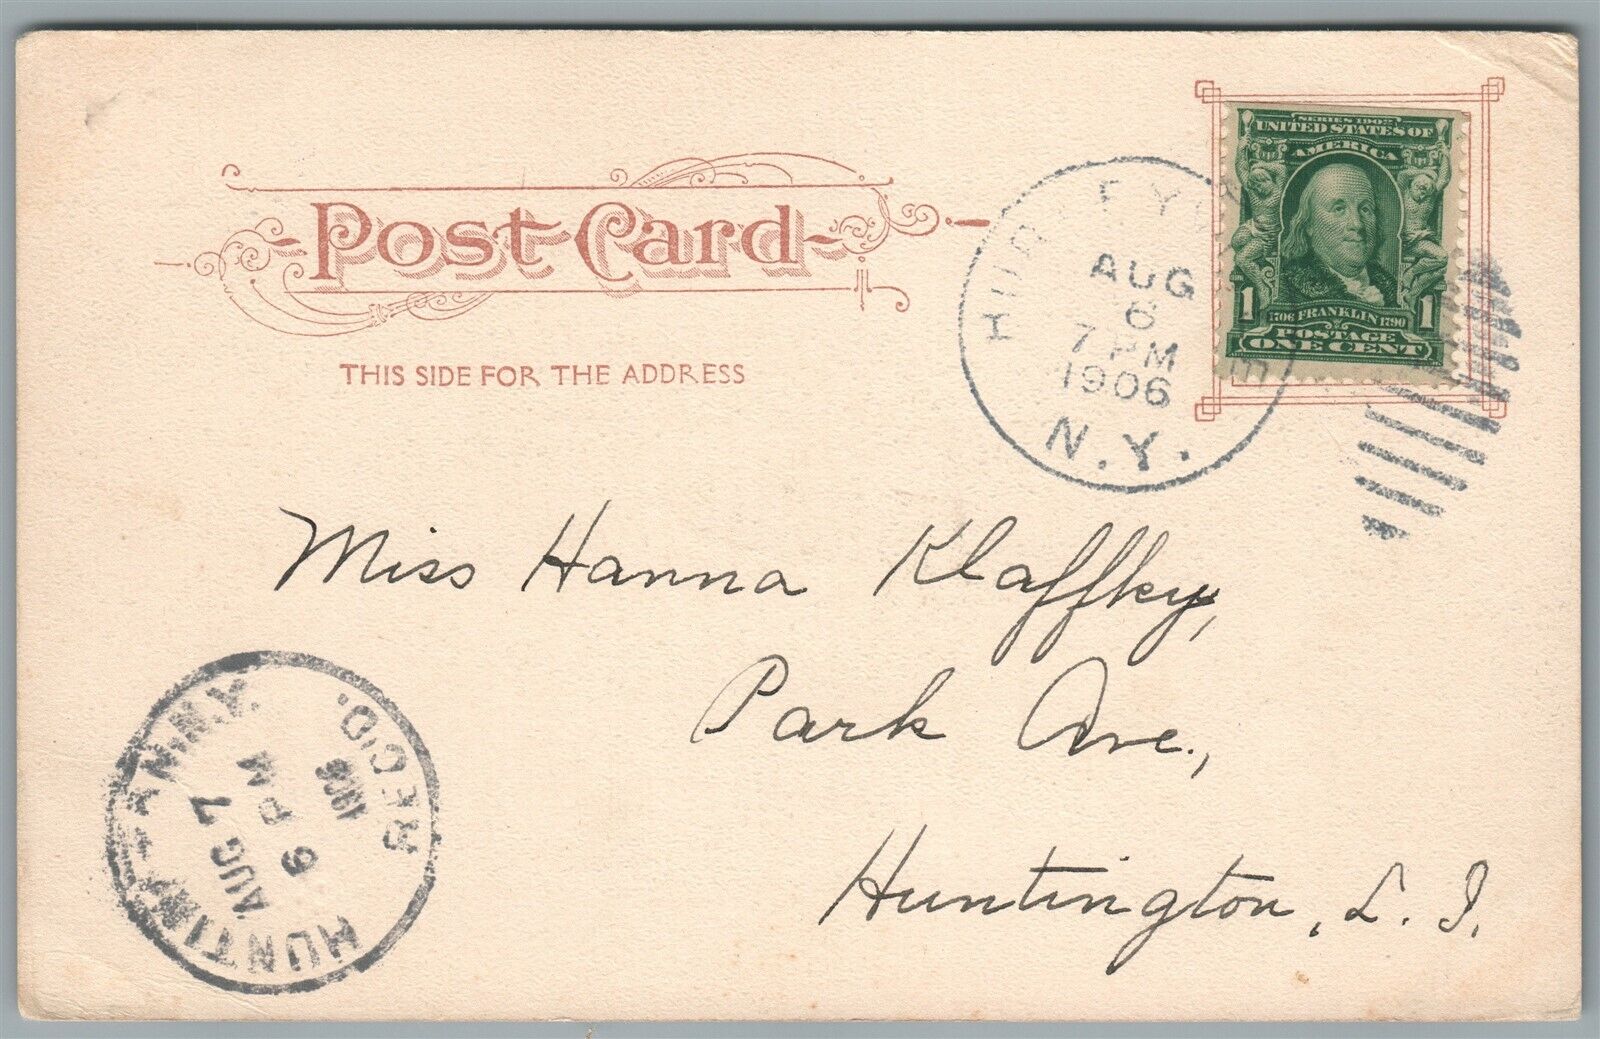 Post Card
THIS SIDE FOR THE ADDRESS
SERIES 1902
UNITED STATES OF
AMERICA
1 1
1706 FRANKLIN 1790
POSTAGE
ONE CENT
AUG
6
7 PM
1906
N.Y.
Miss Hanna Klaffky,
Park Ave.,
Huntington, L. I.
N.Y.
AUG 7
6 PM
1906
REC'D.